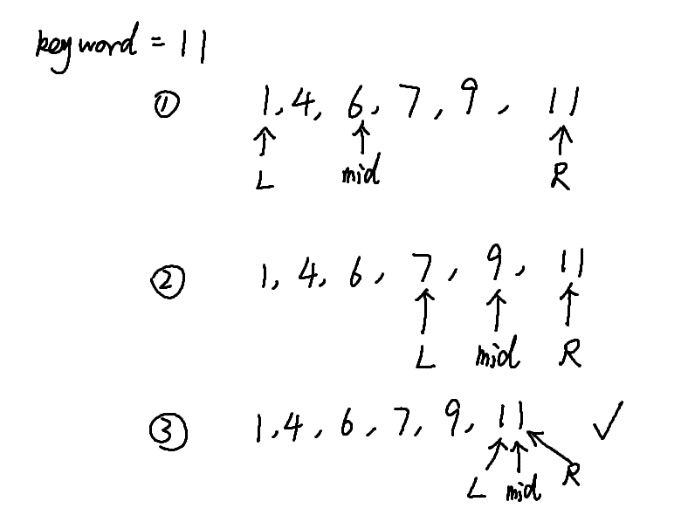 keyword = 11
① 1, 4, 6, 7, 9, 11
L mid R
② 1, 4, 6, 7, 9, 11
L mid R
③ 1, 4, 6, 7, 9, 11 ✓
L mid R